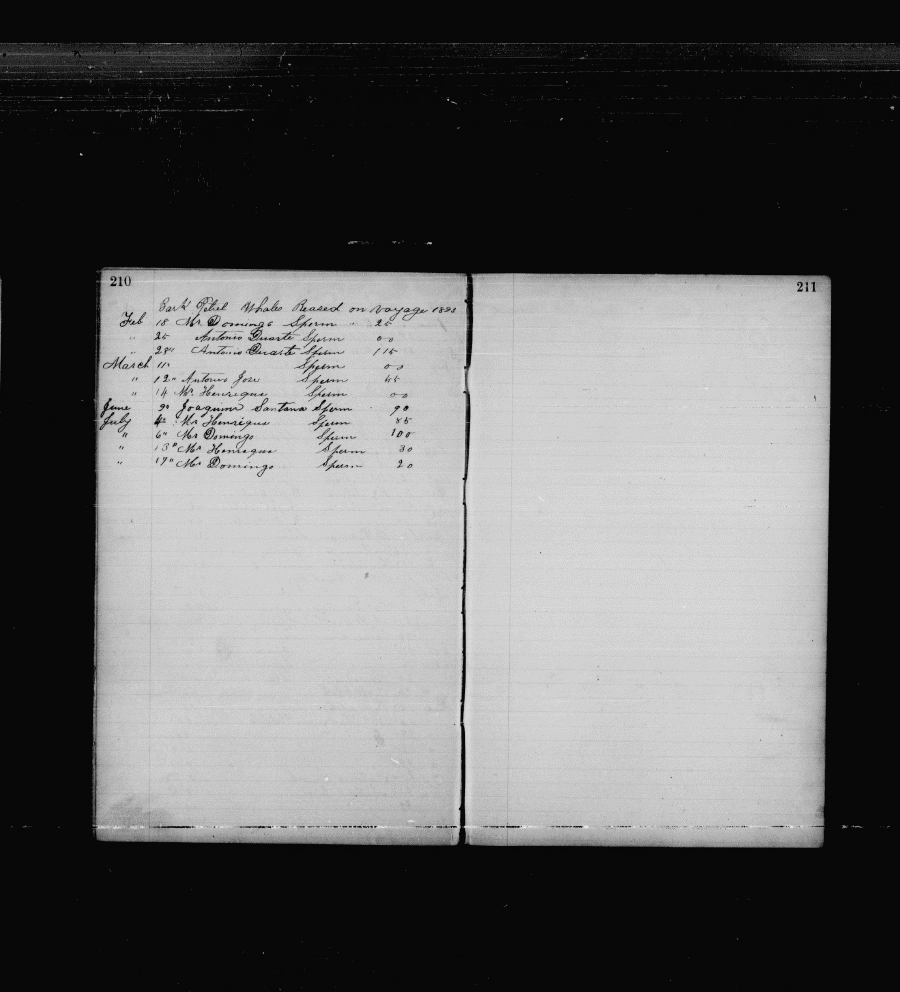 210
Bark Petrel Whales Reased on Voyage
Feb 18 Mr Domingo Sperm " 25
" 25 Antonio Duarte Sperm 00
" 28" Antonio Duarte Sperm 115
March 11" Sperm 00
" 12" Antonio Jose Sperm
" 14 Mr. Henrique Sperm 00
June 9" Joaquim Santana Sperm 90
July 4" Mr Henrique Sperm 85
" 6" Mr Domingo Sperm 100
" 13" Mr Henrique Sperm 30
" 17" Mr Domingo Sperm 20
211